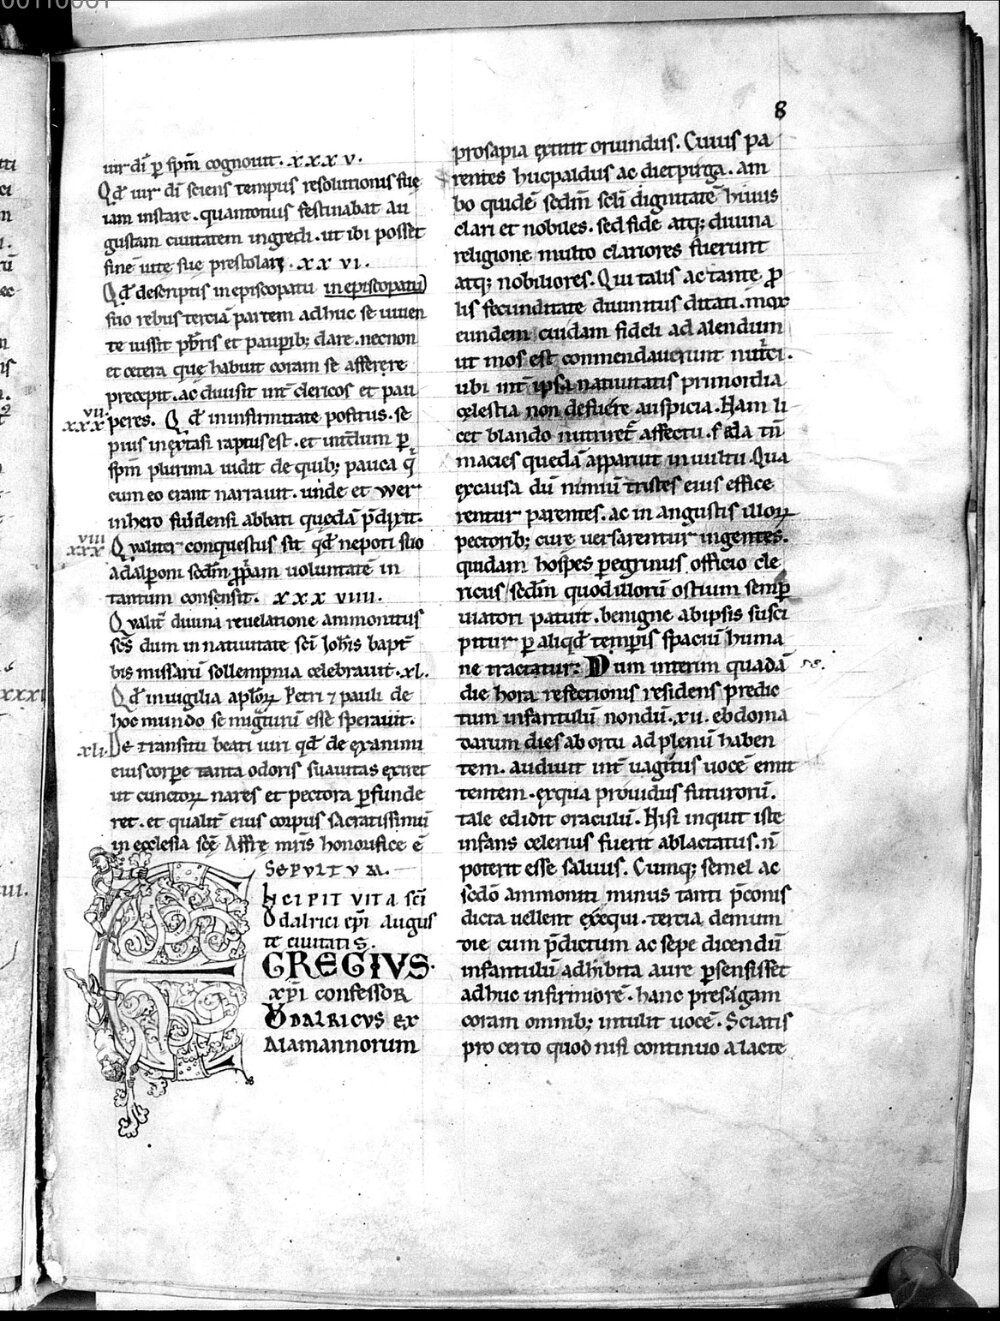 8
uir dī p̄ sp̄m cognouit. xxxv.
Qd̄ uir dī sciens tempus resolutionis suę
iam instare. quantotius festinabat au
gustam ciuitatem ingredi. ut ibi posset
finē uite sue prestolari. xxvi.
Qd̄ descriptis in episcopatu in episcopatu
suo rebus terciā partem adhuc se uiuen
te iussit pb̄ris et paupib; dare. necnon
et cetera quę habuit coram se afferere
precepit. ac diuisit int̄ clericos et pau
xxxvii peres. Qd̄ in infirmitate positus. se
pius in extasi raptus est. et in un̄dum p̄
sp̄m plurima uidit de quib; pauca q̄
cum eo erant narrauit. unde et wer
inhero fuldensi abbati quedā p̄dixit.
xxxviii Qualiter conquestus sit qd̄ nepoti suo
adalponi sedm̄ p̄p̄am uoluntatē in
tantum consensit. xxxviiii.
Qualit̄ diuina reuelatione ammonitus
sc̄s dum in natiuitate sc̄i Ioh̄is bapt̄
bis missarū sollempnia celebrauit. xl.
Qd̄ in uigilia aplōꝝ Petri ⁊ pauli de
hoc mundo se migturū esse sperauit.
xli. De transitu beati uiri qd̄ de exanimi
eius corpe tanta odoris suauitas exiret
ut cunctoꝝ nares et pectora p̄funde
ret. et qualit̄ eius corpus sacratissimū
in ecclesia scē Affre mr̄is honorifice ē
SEPVLTVM.
INCIPIT VITA sc̄i
Odalrici ep̄i augus
te ciuitatis.
EGREGIVS.
xp̄i confessor
VODALRICVS EX
Alamannorum
prosapia extitit oriundus. Cuius pa
rentes hucpaldus ac dietpirga. am
bo quidē sedm̄ scl̄i dignitatē huius
clari et nobiles. sed fide atq; diuina
religione multo clariores fuerunt
atq; nobiliores. Qui talis ac tante p̄
lis fecunditate diuinitus ditati. mox
eundem cuidam fideli ad alendum
ut mos est commendauerunt nut̄ici.
ubi int̄ ipsa natiuitatis primordia
cęlestia non defuere auspicia. Nam li
cet blando nutriret̄ affectu. feda tn̄
macies quedā apparuit in uultu. Qua
excausa dū nimiū tristes eius effice
rentur parentes. ac in angustis illoꝝ
pectorib; cure uersarentur ingentes.
quidam hospes pegrinus officio cle
ricus sedm̄ quod illorū ostium semp̄
uiatori patuit. benigne ab ipsis susci
pitur p̄ aliqd̄ temp̄is spaciū huma
ne tractatur: Dum interim quadā
die hora refectionis residens predic
tum infantulū nondū .xii. ebdoma
darum dies ab ortu ad plenū haben
tem. audiuit int̄ uagitus uocē emit
tentem. ex qua prouidus futurorū.
tale edidit oraculū. Nisi inquit iste
infans celerius fuerit ablactatus. n̄
poterit esse saluus. Cumq; semel ac
scdō ammoniti minus tanti p̄conis
dicta uellent exequi. tercia demum
die cum p̄dictum ac sepe dicendū
infantulū adhibita aure p̄sensisset
adhuc infirmiorē. hanc presagam
coram omnib; intulit uocē. Sciatis
pro certo quod nisi continuo a lacte